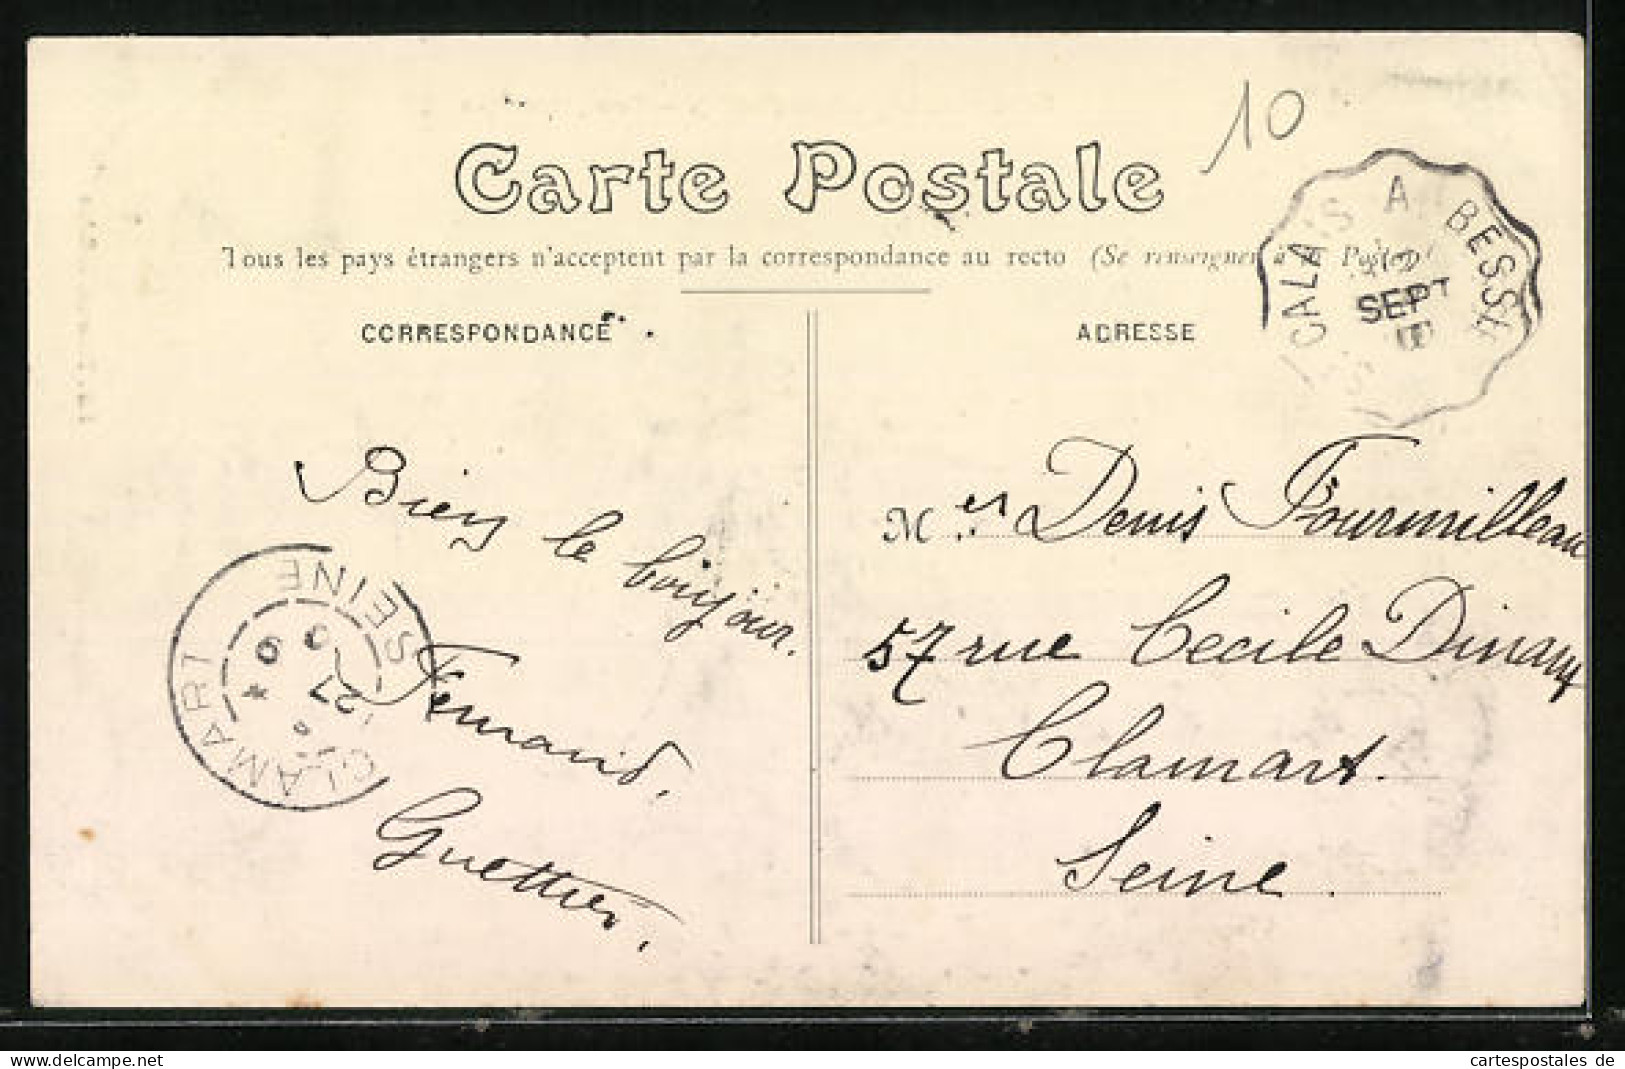 10
Carte Postale
Tous les pays étrangers n'acceptent par la correspondance au recto (Se renseigner à la Poste)
CORRESPONDANCE
ADRESSE
CALAIS A BESSE
SEPT
Bien le bonjour.
Fernand.
Guettier.
CLAMART SEINE
27
9
Mer Denis Fourmilleau
57 rue Cecile Dinant
Clamart.
Seine.
cartespostales de